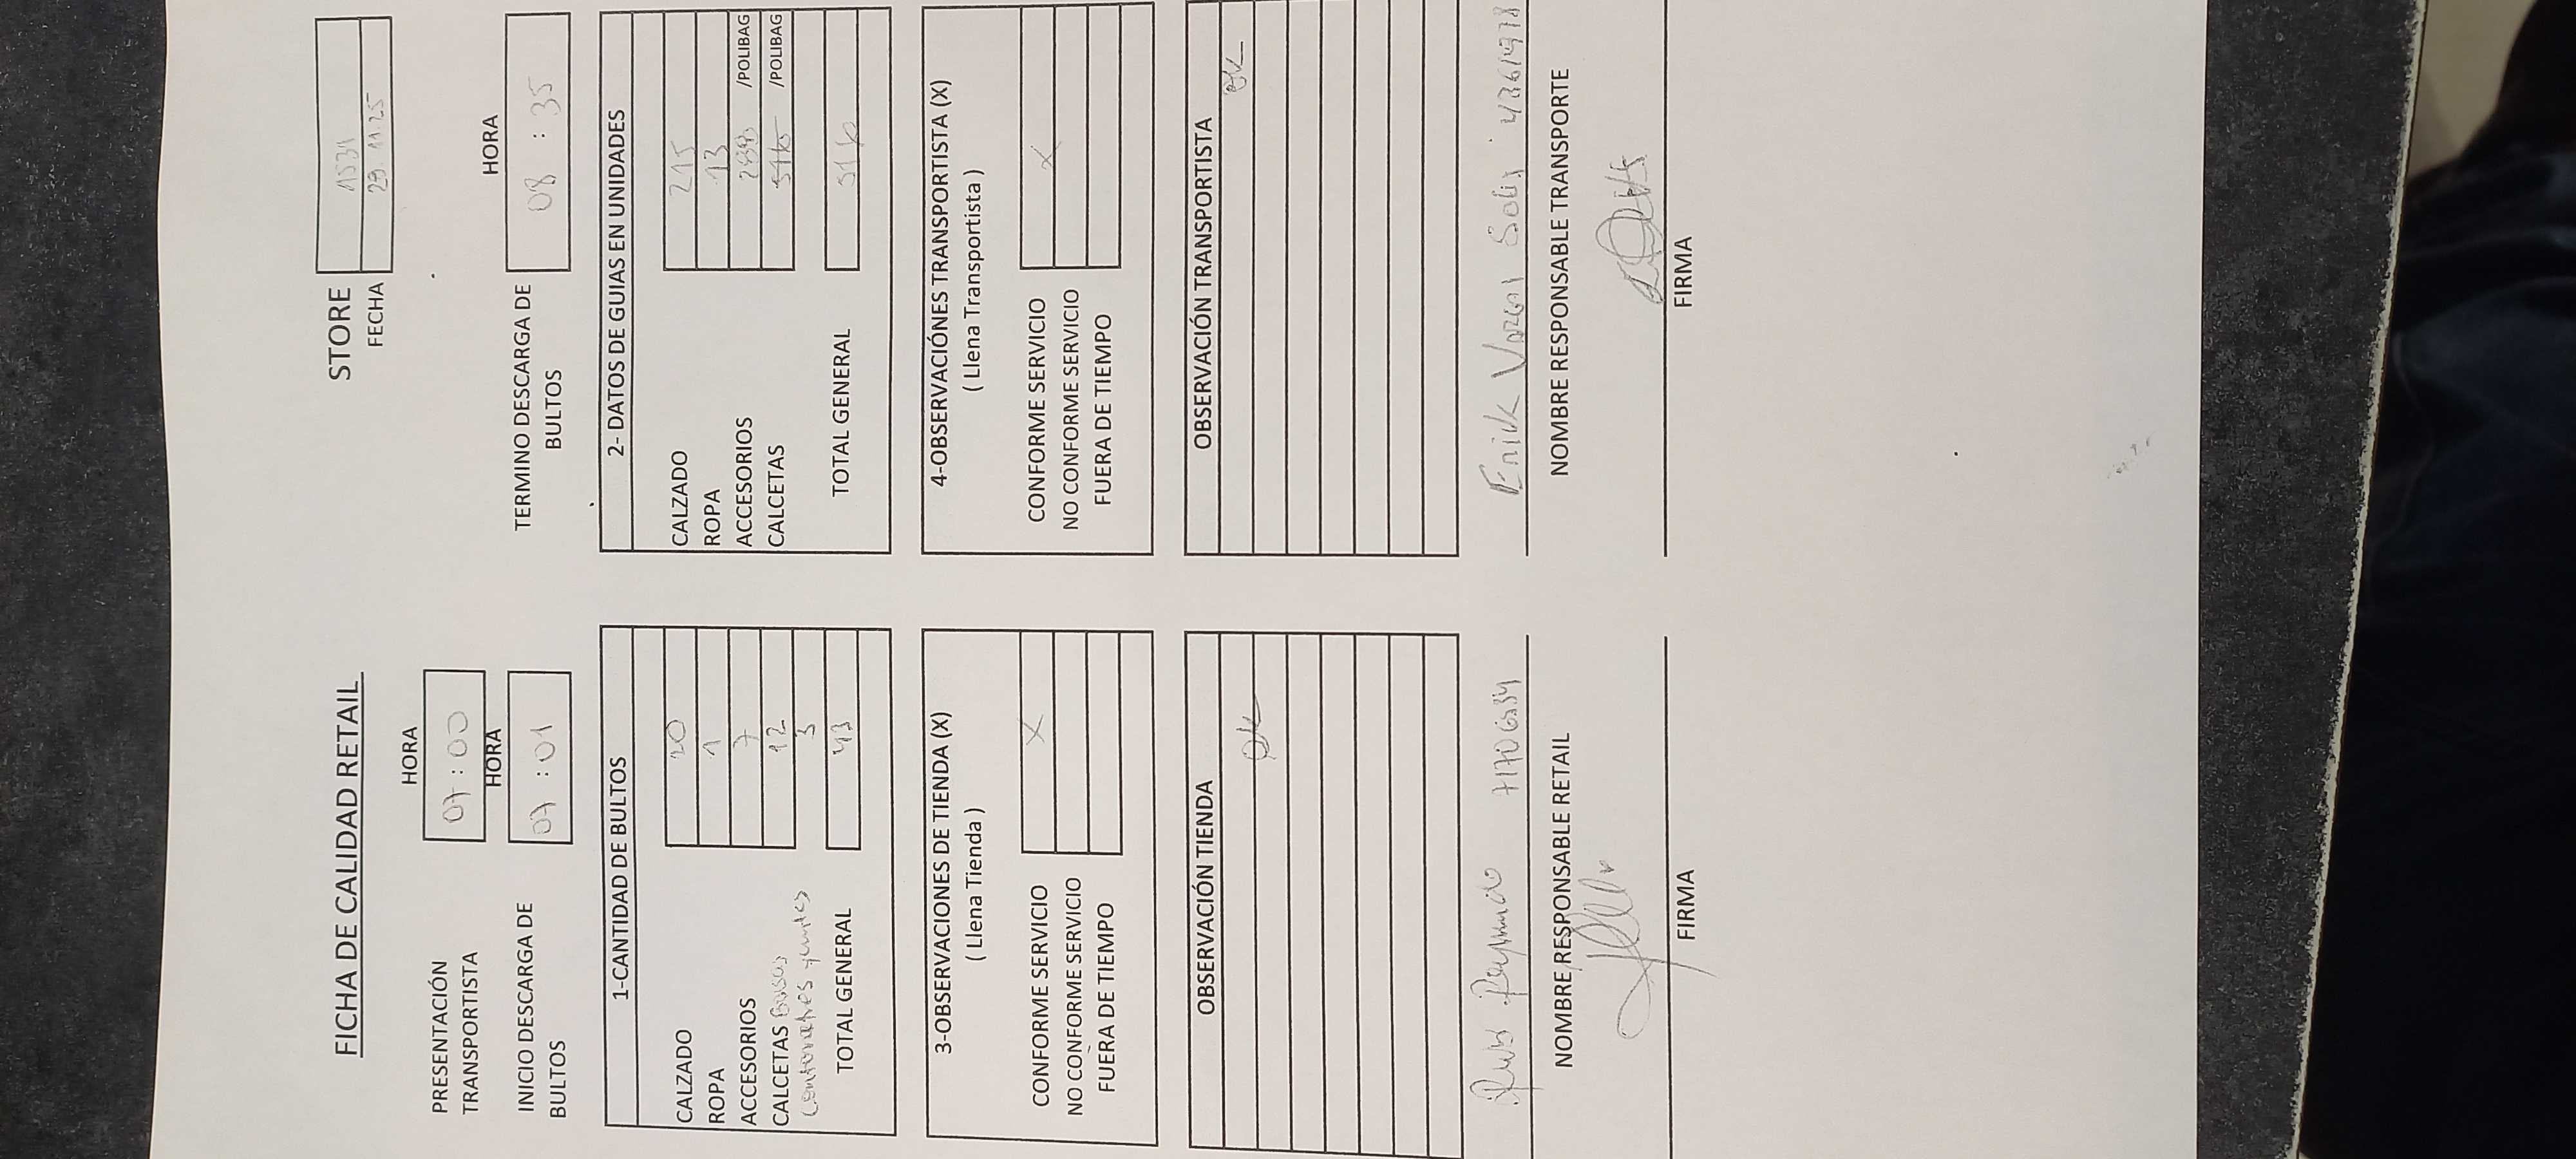 FICHA DE CALIDAD RETAIL
STORE 1531
FECHA 29.11.25
PRESENTACIÓN TRANSPORTISTA
HORA
07 : 00
INICIO DESCARGA DE BULTOS
HORA
07 : 01
TERMINO DESCARGA DE BULTOS
HORA
08 : 35
1-CANTIDAD DE BULTOS
CALZADO 20
ROPA 1
ACCESORIOS 7
CALCETAS 12
3
TOTAL GENERAL 43
2- DATOS DE GUIAS EN UNIDADES
CALZADO 215
ROPA 13
ACCESORIOS 288 /POLIBAG
CALCETAS /POLIBAG
TOTAL GENERAL 516
3-OBSERVACIONES DE TIENDA (X)
( Llena Tienda )
CONFORME SERVICIO X
NO CONFORME SERVICIO
FUERA DE TIEMPO
4-OBSERVACIÓNES TRANSPORTISTA (X)
( Llena Transportista )
CONFORME SERVICIO X
NO CONFORME SERVICIO
FUERA DE TIEMPO
OBSERVACIÓN TIENDA
OK
OBSERVACIÓN TRANSPORTISTA
OK
71706334
NOMBRE RESPONSABLE RETAIL
FIRMA
Erik Vargas Solis
NOMBRE RESPONSABLE TRANSPORTE
FIRMA